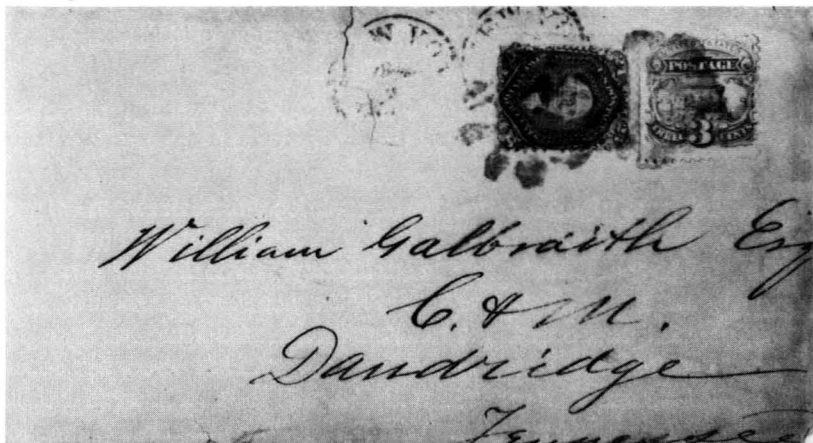 W YO
POSTAGE
3
William Galbraith Esq
C. & M.
Dandridge
Tennessee